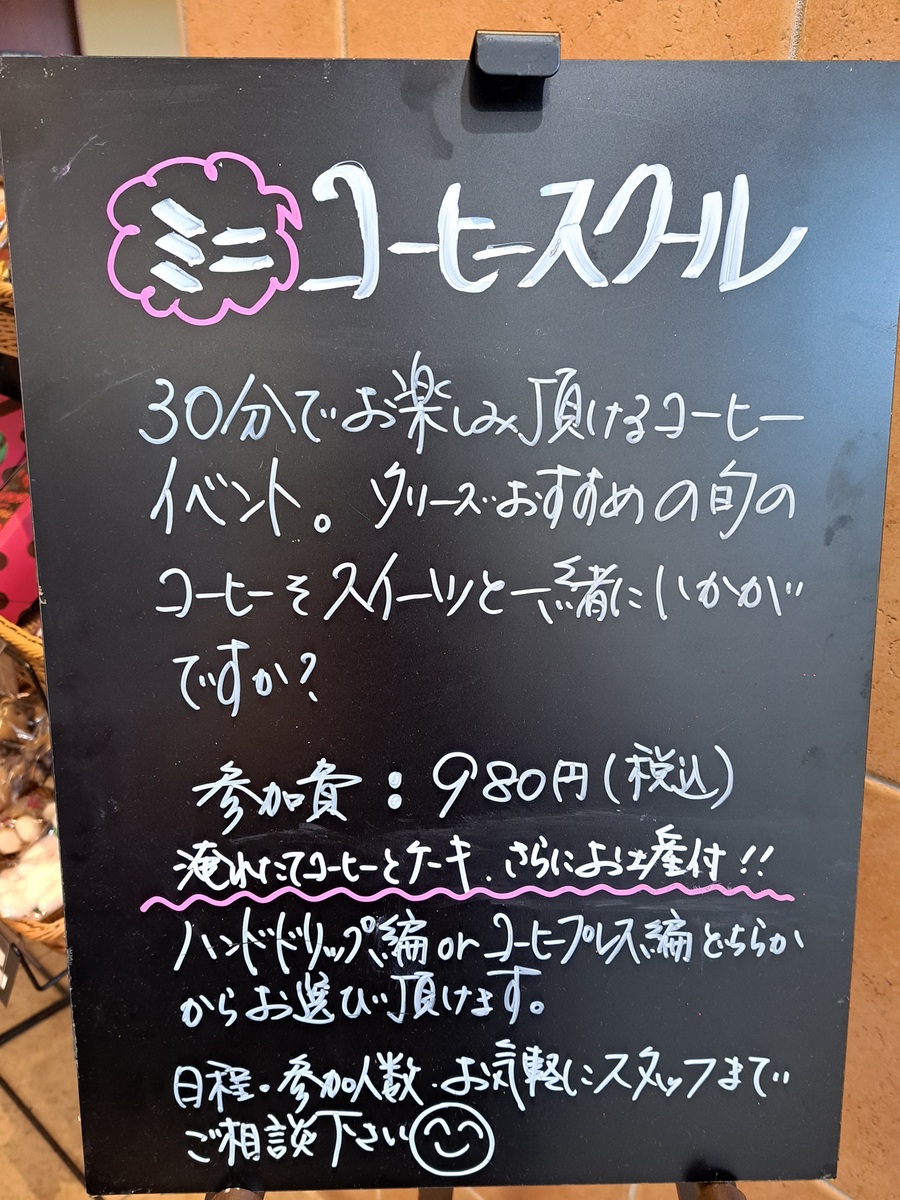 ミニ コーヒースクール
30分でお楽しみ頂けるコーヒー
イベント。クリーズおすすめの旬の
コーヒーをスイーツと一緒にいかが
ですか?
参加費:980円(税込)
淹れたてコーヒーとケーキ、さらにお土産付!!
ハンドドリップ編 or コーヒープレス編どちらか
からお選び頂けます。
日程・参加人数・お気軽にスタッフまで
ご相談下さい